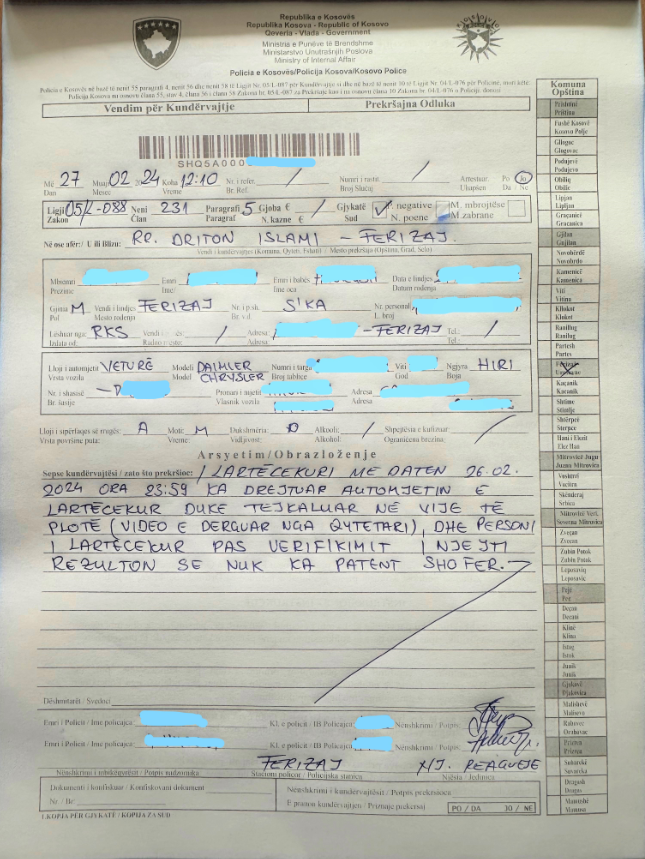 Republika e Kosovës
Republika Kosova - Republic of Kosovo
Qeveria - Vlada - Government
Ministria e Punëve të Brendshme
Ministarstvo Unutrašnjih Poslova
Ministry of Internal Affair
Policia e Kosovës/Policija Kosova/Kosovo Police
Vendim për Kundërvajtje Prekršajna Odluka
Komuna
Opština
SHQ5A000
Më 27 Muaj 02 2024 Koha 12:10 Nr. i refer. / Numri i rastit / Arrestuar Po Jo
Dan Mesec Vreme Br. Ref. Broj Slučaj Uhapšen Da Ne
Ligji 05/L-088 Neni 231 Paragrafi 5 Gjoba € / Gjykatë ✓ P. negative M. mbrojtëse
Zakon Član Paragraf N. kazne € Sud N. poene M zabrane
Në ose afër: / U ili Blizu: RR. DRITON ISLAMI - FERIZAJ
Vendi i kundërvajtjes (Komuna, Qyteti, Fshati) / Mesto prekršaja (Opština, Grad, Selo)
Mbiemri Emri Emri i babës Data e lindjes
Prezime Ime Ime oca Datum rođenja
Gjinia M Vendi i lindjes FERIZAJ Nr. i p.sh. S'KA Nr. personal
Pol Mesto rođenja Br. vd L. broj
Lëshuar nga: RKS Vendi i / Adresa: - FERIZAJ Tel.: /
Izdata od: Radno mesto: Adresa: Tel.:
Lloji i automjetit VETURË Modeli DAIMLER Numri i targave Viti Ngjyra HIRI
Vrsta vozila Model CHRYSLER Broj tablice God Boja
Nr. i shasisë Pronari i mjetit Adresa
Br. šasije Vlasnik vozila Adresa
Lloji i sipërfaqes së rrugës: A Moti: M Dukshmëria: D Alkooli: / Shpejtësia e kufizuar: /
Vrsta površine puta: Vreme: Vidljivost: Alkohol: Ograničena brzina:
Arsyetim/Obrazloženje
Sepse kundërvajtësi / zato što prekršioc: I LARTËCEKURI ME DATEN 26.02.
2024 ORA 23:59 KA DREJTUAR AUTOMJETIN E
LARTËCEKUR DUKE TEJKALUAR NË VIJE TË
PLOTË (VIDEO E DERGUAR NGA QYTETARI), DHE PERSONI
I LARTËCEKUR PAS VERIFIKIMIT I NJEJTI
REZULTON SE NUK KA PATENT SHOFER.
Dëshmitarët / Svedoci
Emri i Policit / Ime policajca: Kl. e policit / IB Policajca: Nënshkrimi / Potpis:
Emri i Policit / Ime policajca: Kl. e policit / IB Policajca: Nënshkrimi / Potpis:
FERIZAJ NJ. REAGUEJE
Nënshkrimi i mbikëqyrësit / Potpis nadzornika Stacioni policor / Policijska stanica Njësia / Jedinica
Dokumenti i konfiskuar / Konfiskovani dokument Nënshkrimi i kundërvajtësit / Potpis prekršioca
Nr. / Br. E pranon kundërvajtjen / Priznaje prekršaj PO / DA JO / NE
1.KOPJA PËR GJYKATË / KOPIJA ZA SUD
Prishtinë
Priština
Fushë Kosovë
Kosovo Polje
Gllogoc
Glogovac
Podujevë
Podujevo
Obiliq
Obilić
Lipjan
Lipljan
Graçanicë
Gračanica
Gjilan
Gnjilane
Novobërdë
Novobrdo
Kamenicë
Kamenica
Viti
Vitina
Kllokot
Klokot
Ranillug
Ranilug
Partesh
Parteš
Ferizaj
Uroševac
Kaçanik
Kačanik
Shtime
Štimlje
Shtërpcë
Štrpce
Hani i Elezit
Elez Han
Mitrovicë Jugu
Južna Mitrovica
Vushtrri
Vučitrn
Skënderaj
Srbica
Mitrovicë Veri.
Severna Mitrovica
Zveçan
Zvečan
Zubin Potok
Zubin Potok
Leposaviq
Leposavić
Pejë
Peć
Deçan
Dečani
Klinë
Klina
Istog
Istok
Junik
Junik
Gjakovë
Đakovica
Malishevë
Mališevo
Rahovec
Orahovac
Prizren
Prizren
Suharekë
Suvareka
Dragash
Dragaš
Mamushë
Mamuša